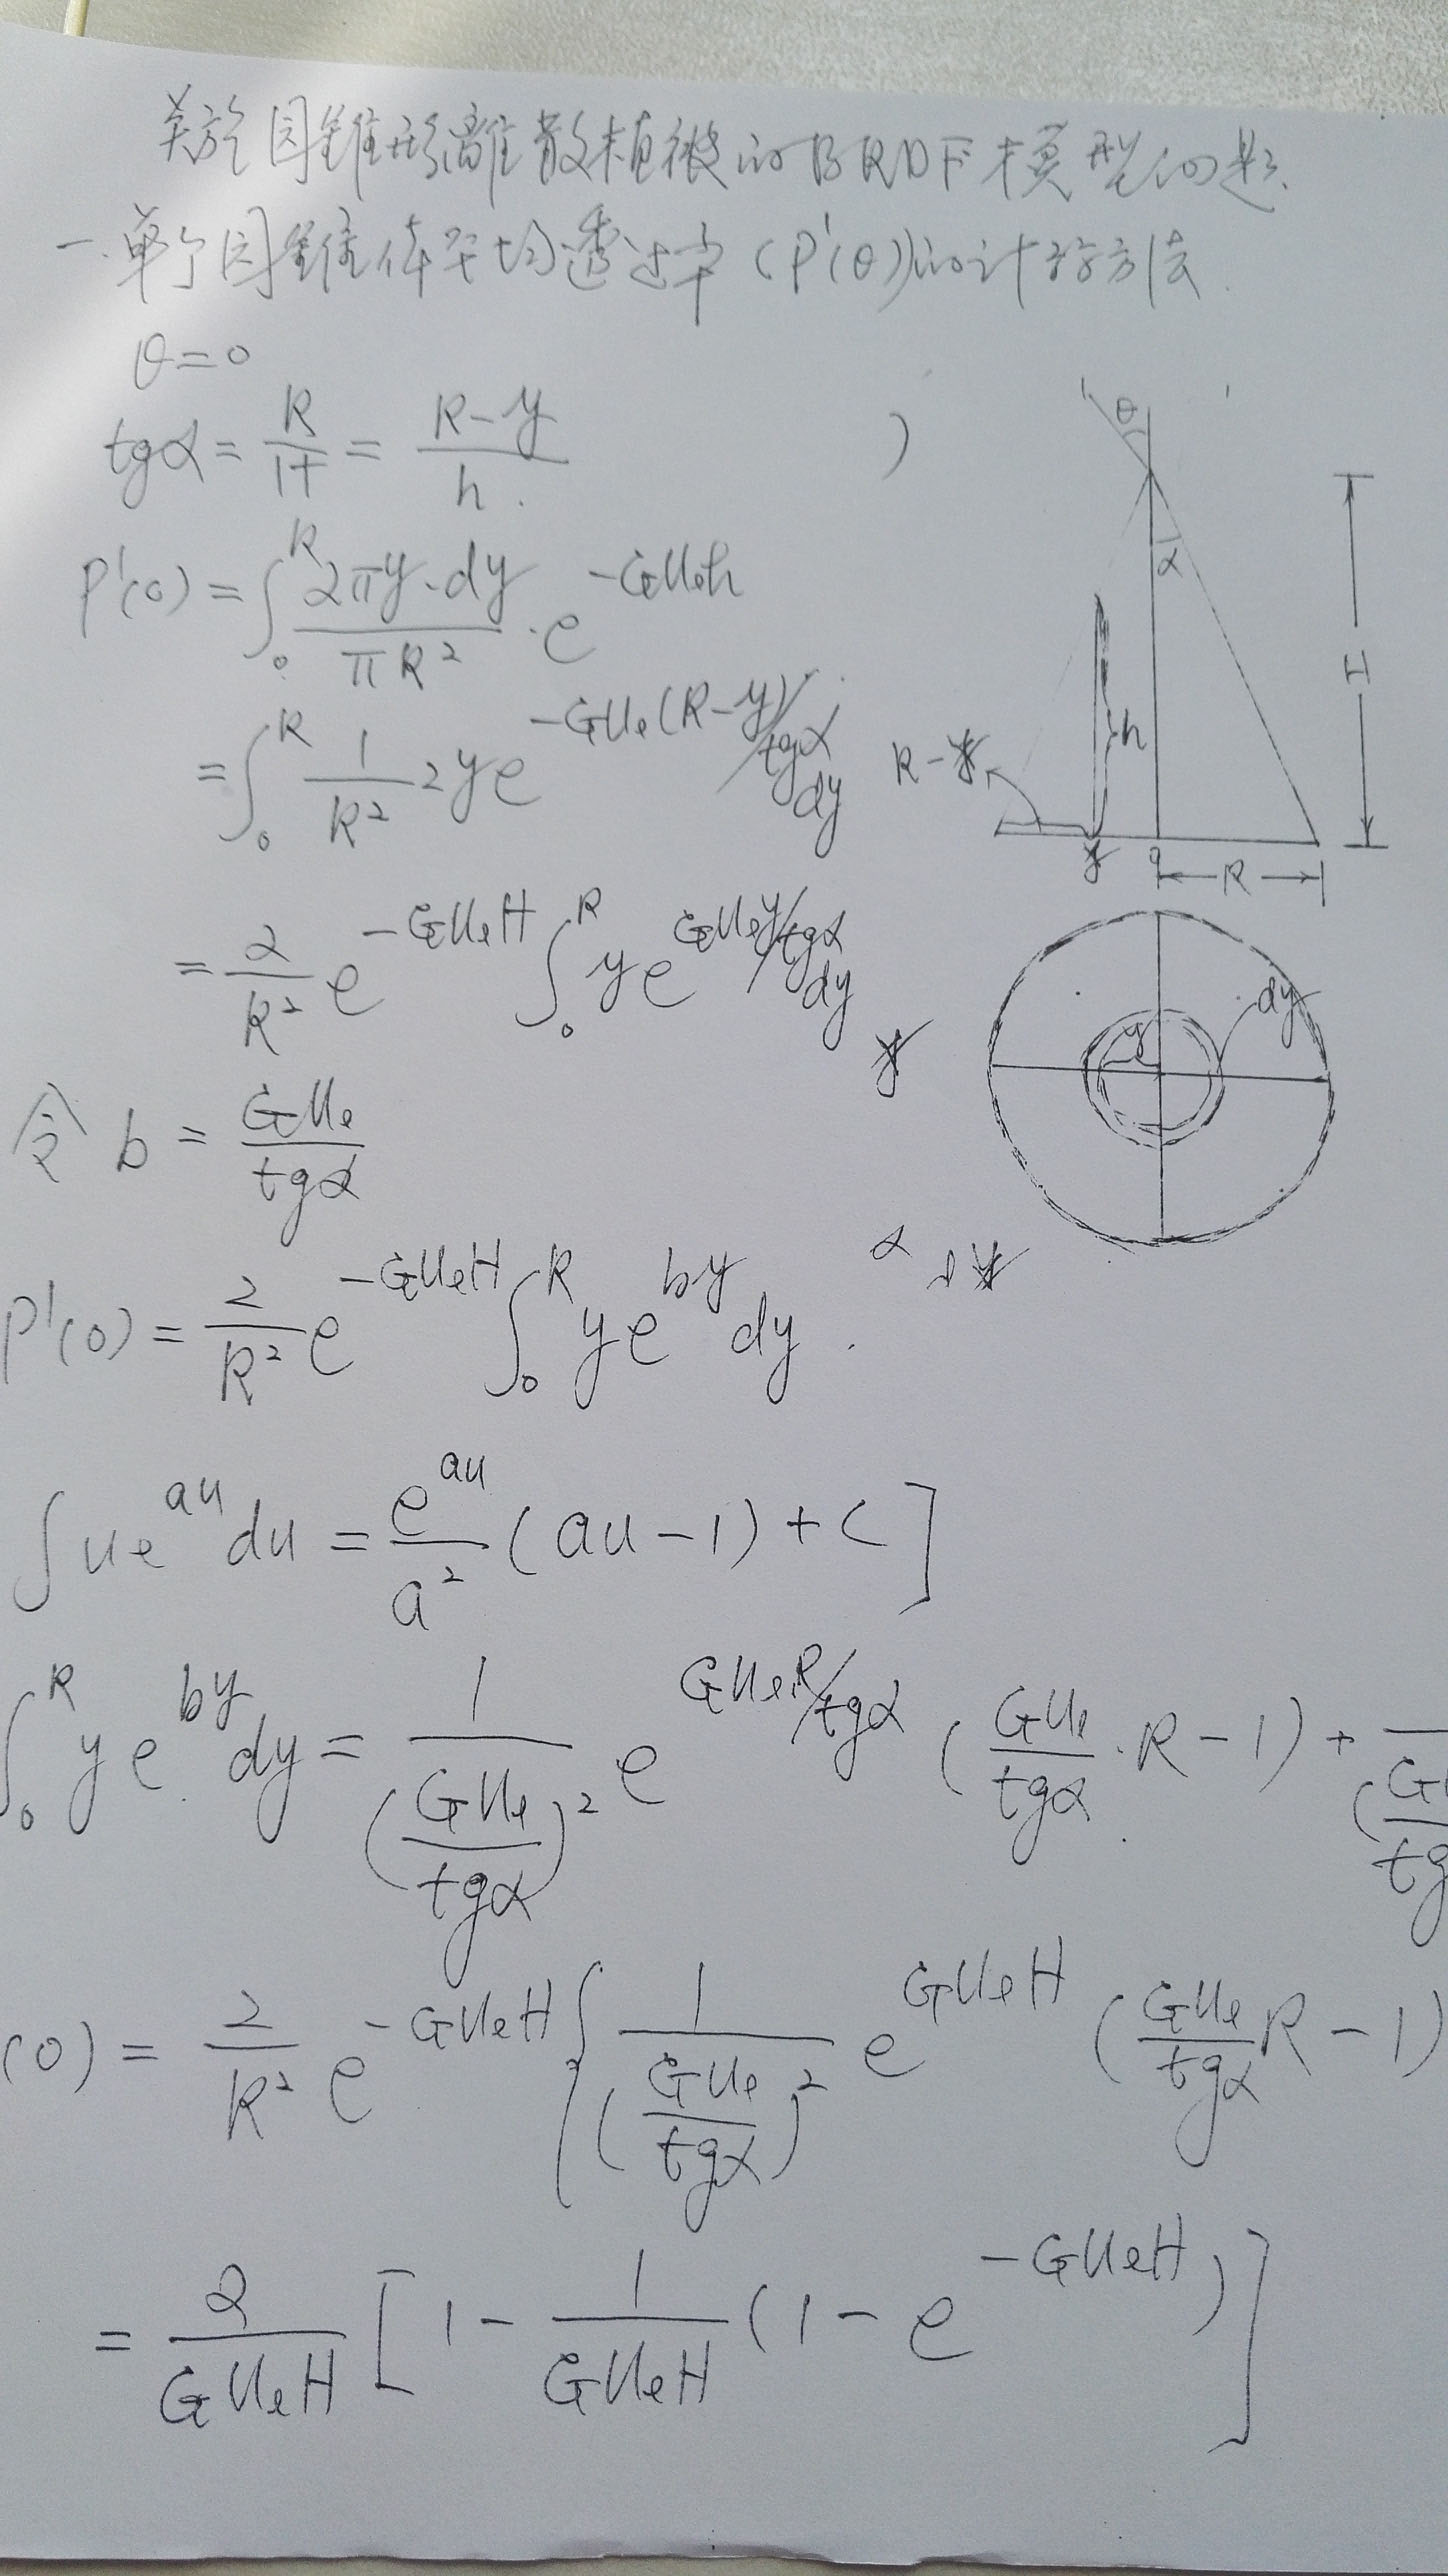 关于园锥形离散植被的BRDF模型问题
一.单个园锥体平均透过率(P'(θ))的计算方法.
θ=0
tgα = R/H = (R-y)/h.
P'(0) = ∫₀ᴿ (2πy·dy)/(πR²) · e^(-Gu_e h)
= ∫₀ᴿ 1/R² 2y e^(-Gu_e(R-y)/tgα) dy
= 2/R² e^(-Gu_e H) ∫₀ᴿ y e^(Gu_e y/tgα) dy
令 b = Gu_e/tgα
P'(0) = 2/R² e^(-Gu_e H) ∫₀ᴿ y e^(by) dy.
∫ u e^(au) du = e^(au)/a² (au-1) + C ]
∫₀ᴿ y e^(by) dy = 1/(Gu_e/tgα)² e^(Gu_e R/tgα) (Gu_e/tgα · R - 1) +
(0) = 2/R² e^(-Gu_e H) { 1/(Gu_e/tgα)² e^(Gu_e H) (Gu_e/tgα R - 1)
= 2/(Gu_e H) [ 1 - 1/(Gu_e H) (1 - e^(-Gu_e H)) ]
θ
α
H
h
R-y
y
o
R
y
dy